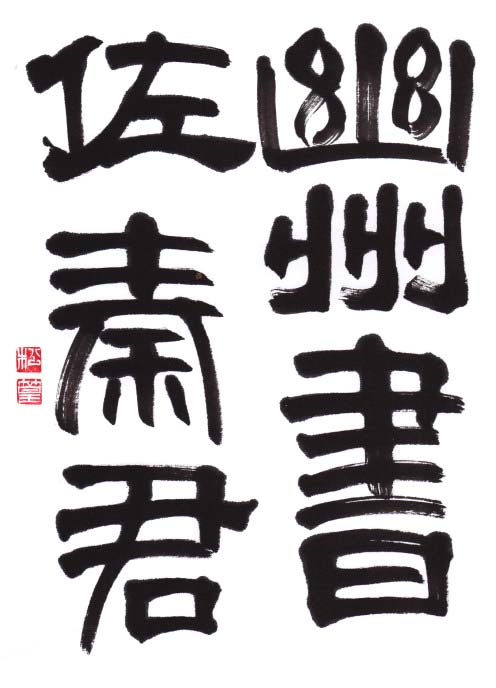 幽州書
佐秦君